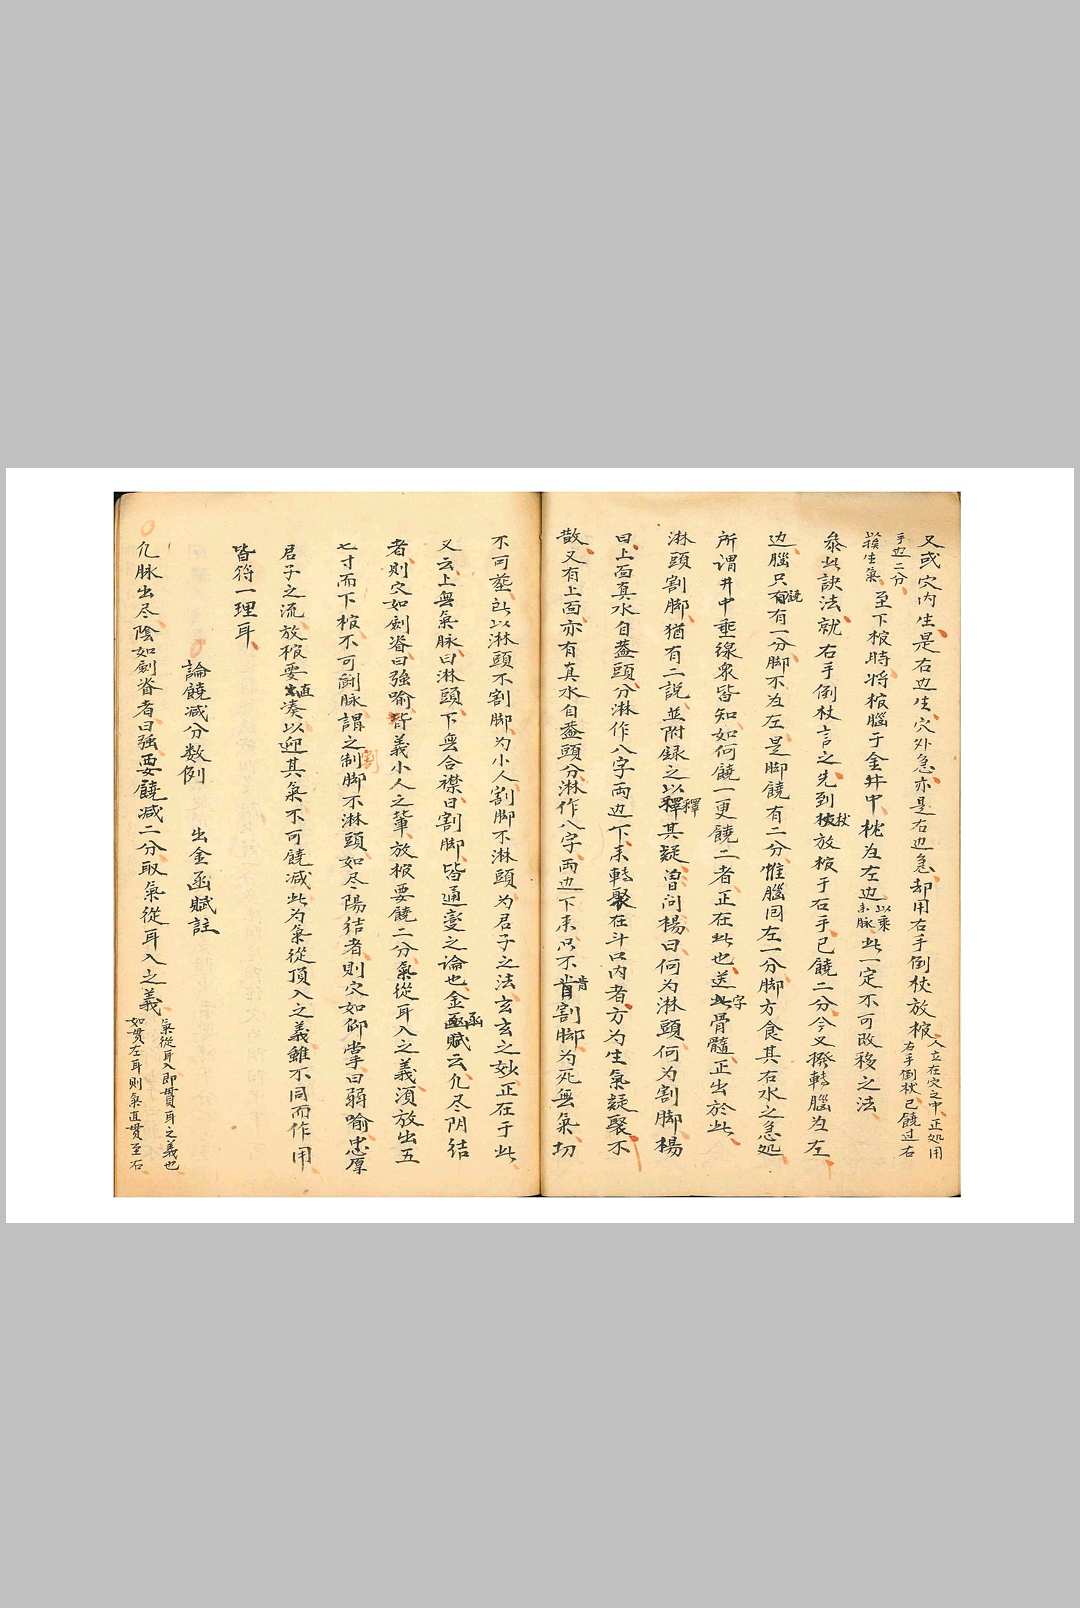 又或穴内生是右边生穴外急亦是右边急却用右手倒杖放棺人立在穴之中正処用右手倒杖已饒过右
手边二分以挨生氣至下棺時将棺腦于金井中枕为左边以乘來脉此一定不可改移之法
叅此訣法就右手倒杖言之先到杖放棺于右手已饒二分今又撥轉腦为左
边腦只有饒有一分脚不为左是脚饒有二分惟腦回左一分脚方食其右水之急処
所谓井中垂線衆皆知如何饒一更饒二者正在此也送此字骨髓正出於此
淋頭割脚猶有二説並附録之以釋其疑曽问楊曰何为淋頭何为割脚楊
曰上面真水自葢頭分淋作八字両边下来轉聚在斗口内者方为生氣凝聚不
散又有上面亦有真水自葢頭分淋作八字両边下来只不肯割脚为死無氣切
不可葬此以淋頭不割脚为小人割脚不淋頭为君子之法玄玄之妙正在于此
又云上無氣脉曰淋頭下無合襟曰割脚皆通变之论也金函賦云凢尽阴结
者則穴如劍脊曰強喻皆義小人之輩放棺要饒二分氣從耳入之義湏放出五
七寸而下棺不可鬭脉謂之割脚不淋頭如尽陽结者則穴如仰掌曰弱喻忠厚
君子之流放棺要直湊以迎其氣不可饒减此为氣從頂入之義雖不同而作用
皆符一理耳
論饒减分数例 出金函賦註
凢脉出尽陰如劍脊者曰强要饒减二分取氣從耳入之義氣從耳入即貫耳之義也如貫左耳則氣直貫至右